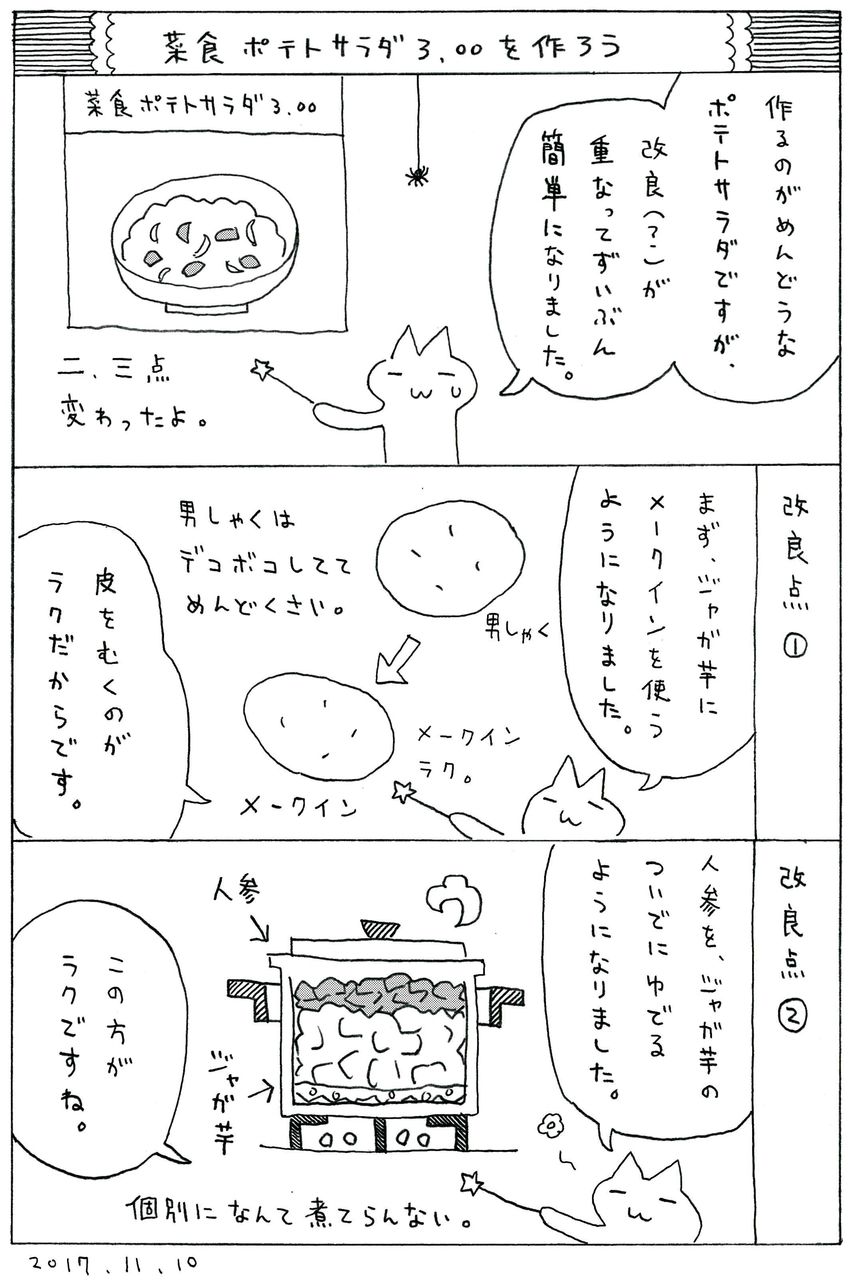 菜食ポテトサラダ3.00を作ろう
作るのがめんどうな
ポテトサラダですが、
改良(?)が
重なってずいぶん
簡単になりました。
菜食ポテトサラダ3.00
二、三点
変わったよ。
改良点①
まず、ジャガ芋に
メークインを使う
ようになりました。
男しゃく
男しゃくは
デコボコしてて
めんどくさい。
メークイン
ラク。
メークイン
皮をむくのが
ラクだからです。
改良点②
人参を、ジャガ芋の
ついでにゆでる
ようになりました。
人参
ジャガ芋
この方が
ラクですね。
個別になんて煮てらんない。
2017.11.10